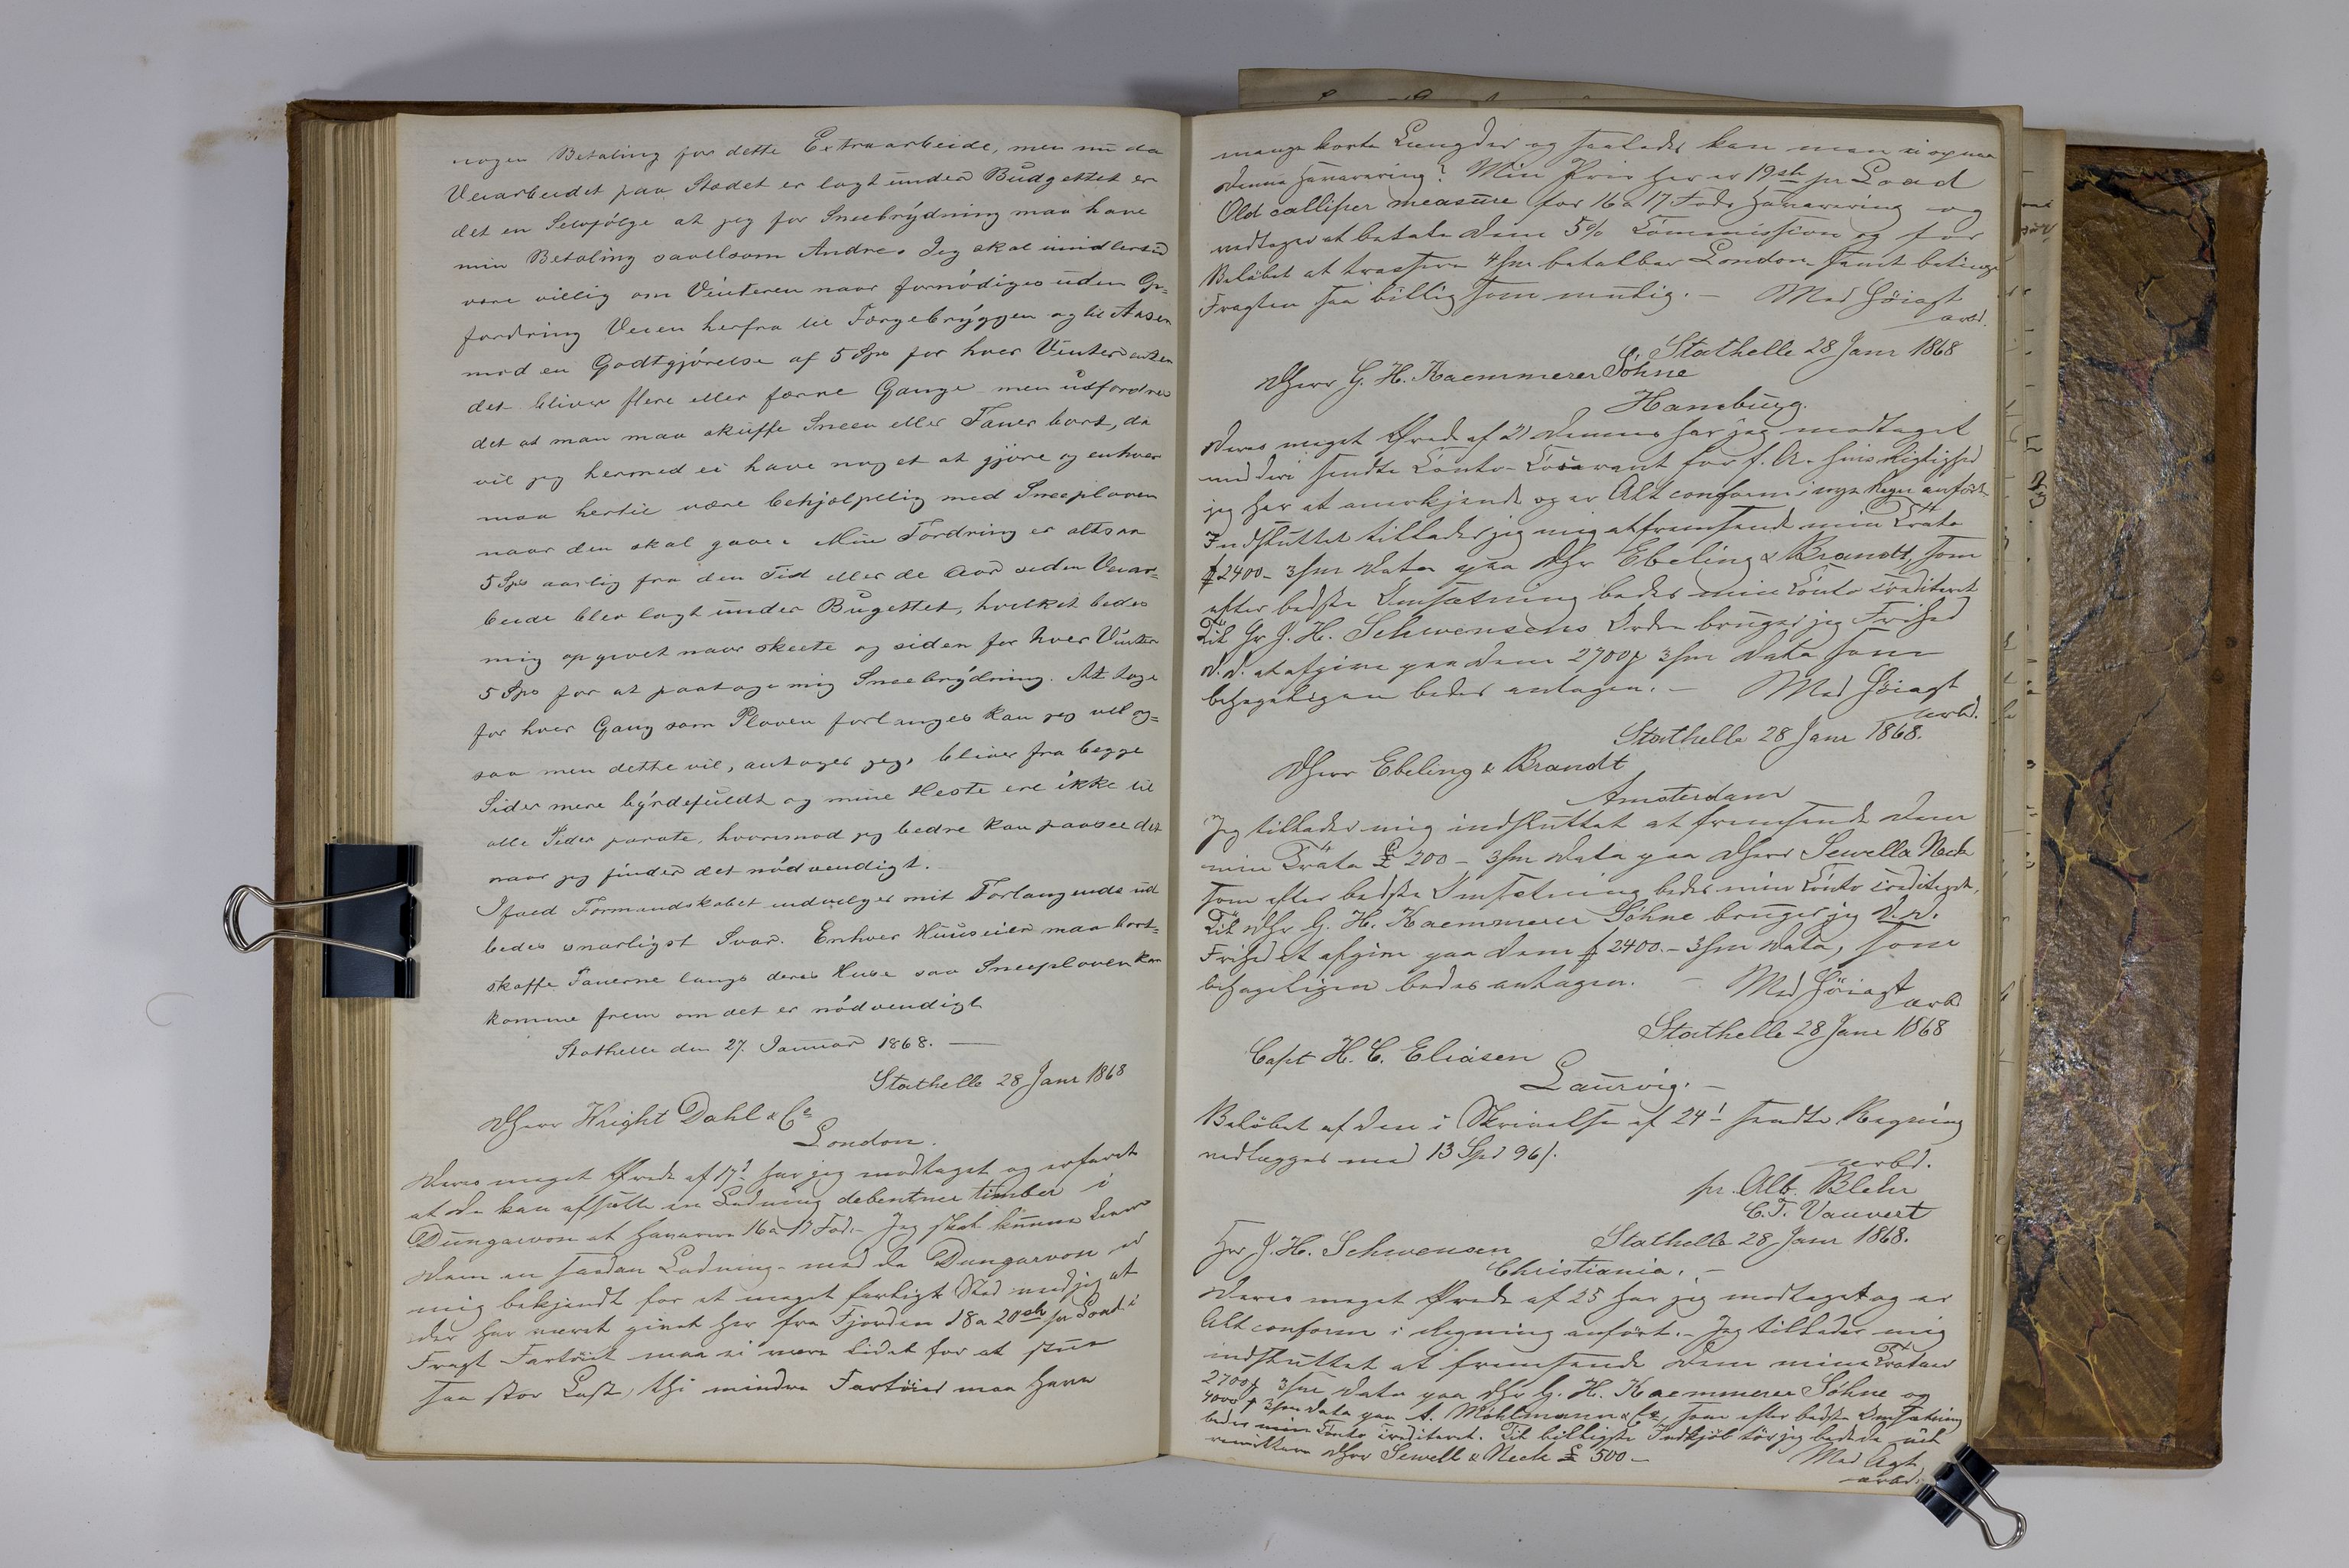 nogen Betaling for dette Extraarbeide, men nu da
Veiarbeidet paa Stedet er lagt under Budgettet er
det en Selvfølge at jeg for Sneebrydning maa have
min Betaling saavelsom Andre. Jeg skal imidlertid
være villig om Vinteren naar fornødiges uden Op-
fordring Veien herfra til Færgebryggen og til Aasen
mod en Godtgjørelse af 5 Spd for hver Vinter enten
det bliver flere eller færre Gange men udfordres
det at man maa skuffe Sneen eller Faner bort, da
vil jeg hermed ei have noget at gjøre og enhver
maa hertil være behjælpelig med Sneeploven
naar den skal gaae. Min Fordring er altsaa
5 Spd aarlig fra den Tid eller de Aar siden Veiar-
beide blev lagt under Bugettet, hvilket bedes
mig opgivet naar skeete og siden for hver Vinter
5 Spd for at paatage mig Sneebrydning. At tage
for hver Gang som Ploven forlanges kan jeg vel og-
saa men dette vil, antager jeg, bliver fra begge
Sider mere byrdefuldt og mine Heste ere ikke til
alle Tider parate, hvorimod jeg bedre kan paasee det
naar jeg finder det nødvendigt.
Ifald Formandskabet indvelger mit Forlangende ud
bedes snarligst Svar. Enhver Huuseier maa bort-
skaffe Fanerne langs deres Huse saa Sneeploven kan
komme frem om det er nødvendigt
Stathelle den 27. Januar 1868. —
Stathelle 28 Janr 1868
DHerr Wright Dahl & Co
London.
Deres meget Ærede af 17d har jeg modtaget og erfaret
at De kan afslutte en Ladning debentner timber i
Dungarvon at Haverere 16 a 17 Fod. — Jeg skal kunne levere
Dem en saadan Ladning — men da Dungarvon er
mig bekjendt for et meget farligt Sted ved jeg at
der har været givet her fra Fjorden 18 a 20 sh pr Load i
Fragt Fartøiet maa ei være lidet for at stue
saa stor Last, thi mindre Fartøier maa have
mange korte Længder og saaledes kan man ei opnaa
denne Haverering? Min Pris her er 19 sh pr Load
Old calliper measure for 16 a 17 Fods Haverering og
vedtager at betale Dem 5% Commission og for
Beløbet at trassere 4 /m betalbar London samt betinge
Fragten saa billig som mulig. — Med Høiagt
ærbd.
Stathelle 28 Janr 1868
DHerr G. H. Kaemmerer Söhne
Hamburg.
Deres meget Ærede af 21 dennes har jeg modtaget
med deri sendte Conto-Courant for f. A. hvis Rigtighed
jeg har at anerkjende og er Alt conform i nye Regn anført
Indsluttet tillader jeg mig at fremsende min Tratte
f 2400 — 3 /m dato paa DHr Ebeling & Brandt, som
efter bedste Omsætning bedes min Conto crediteret
Til Hr J. H. Schwensens Ordre bruger jeg Frihed
d. d. at afgive paa Dem 2700 3 /m dato som
behageligen bedes antagen. — Med Høiagt
ærbd.
Stathelle 28 Janr 1868.
DHerr Ebeling & Brandt
Amsterdam
Jeg tillader mig indsluttet at fremsende Dem
min Trata £ 200 — 3 /m dato paa DHerr Sewell & Neck
som efter bedste Omsætning bedes min Conto crediteret.
Til DHr G. H. Kaemmerer Söhne bruger jeg d. d.
Frihed at afgive paa Dem f 2400. — 3 /m dato, som
behageligen bedes antagen. — Med Høiagt
ærbd
Stathelle 28 Janr 1868
Capt H. C. Eliasen
Laurvig. —
Beløbet af den i Skrivelse af 24 sendte Regning
vedlægges med 13 Spd 96 ſ.
ærbd.
pr. Alb. Blehr
C. T. Vauvert
Stathelle 28 Janr 1868.
Hr J. H. Schwensen
Christiania. —
Deres meget Ærede af 25 har jeg modtaget og er
Alt conform i Regning anført. — Jeg tillader mig
indsluttet at fremsende Dem mine Tratter
2700 3 /m dato paa DHr G. H. Kaemmerer Söhne og
4000 f 3 /m dato paa A. Möhlmann & Co, som efter bedste Omsætning
bedes min Conto crediteret. Til billigste Indkjøb tør jeg bede De
remittere DHrr Sewell & Neck £ 500 —
Med Agt
ærbd.